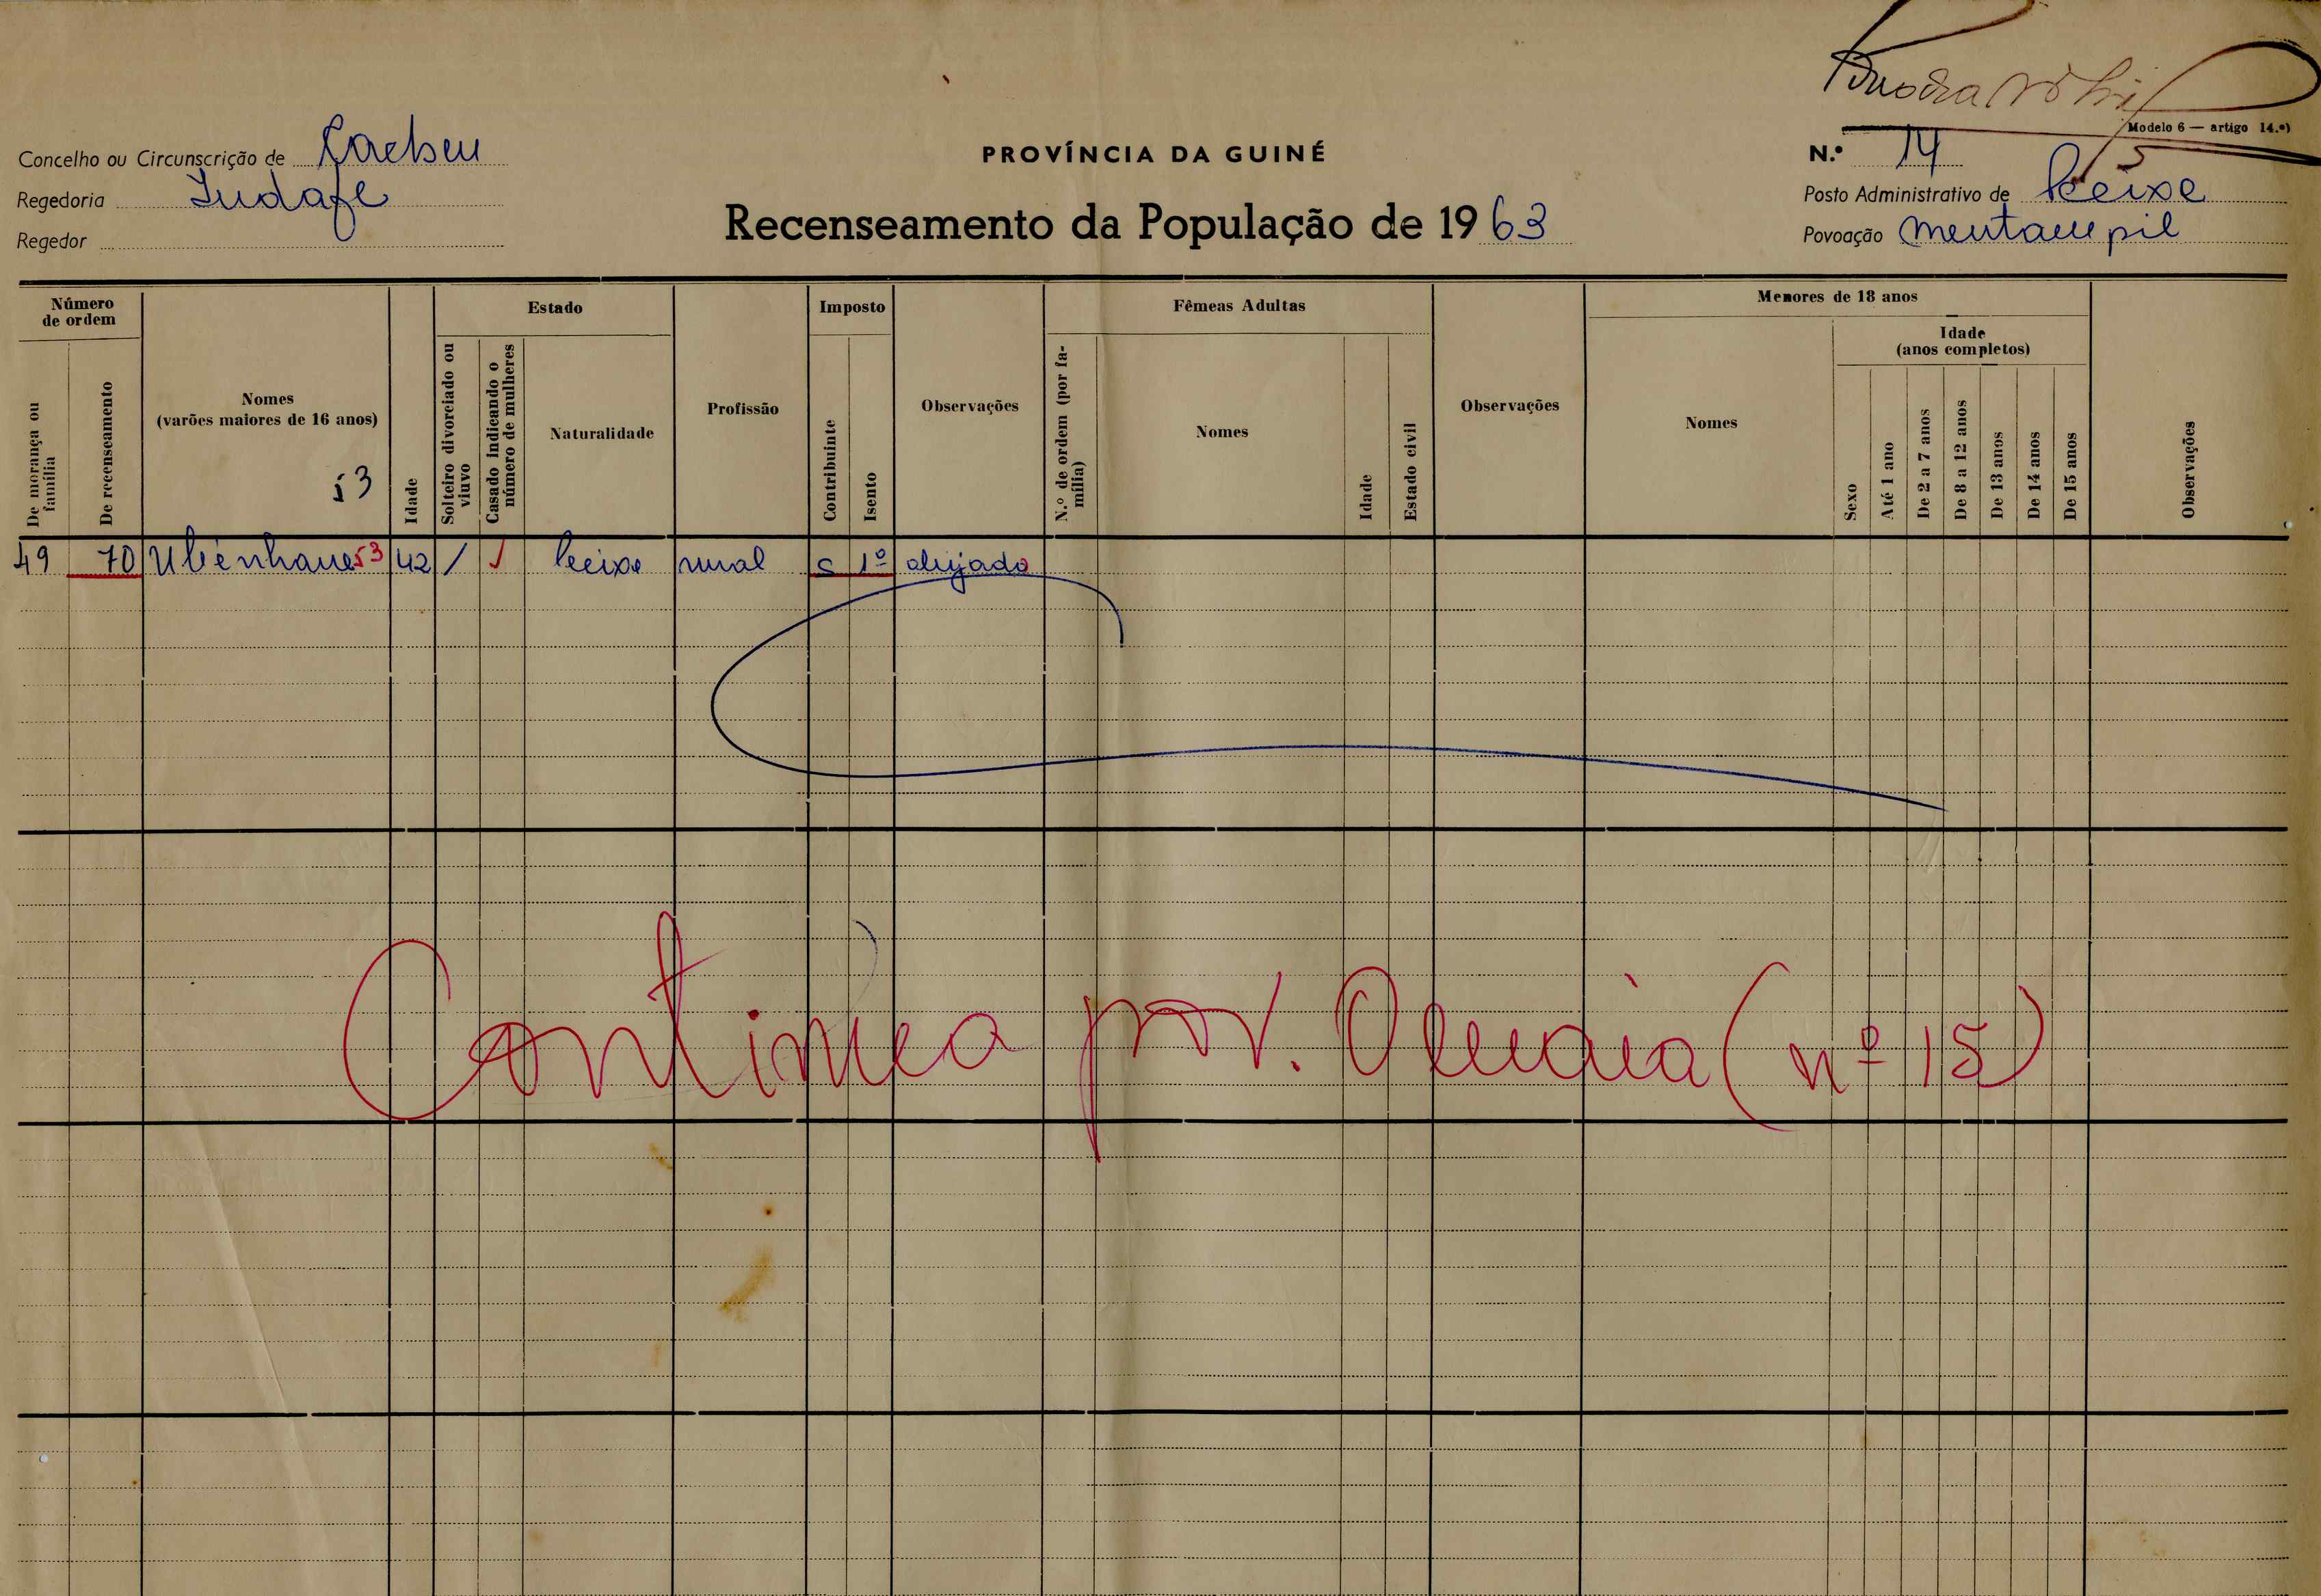 Modelo 6 — artigo 14.º)
Concelho ou Circunscrição de Cacheu
PROVÍNCIA DA GUINÉ
N.º 14
Regedoria
Posto Administrativo de
Recenseamento da População de 1963
Regedor
Povoação
Número de ordem
Estado
Imposto
Fêmeas Adultas
Menores de 18 anos
Idade
(anos completos)
De morança ou família
De recenseamento
Nomes
(varões maiores de 16 anos)
Idade
Solteiro divorciado ou viuvo
Casado indicando o número de mulheres
Naturalidade
Profissão
Contribuinte
Isento
Observações
N.º de ordem (por família)
Nomes
Idade
Estado civil
Observações
Nomes
Sexo
Até 1 ano
De 2 a 7 anos
De 8 a 12 anos
De 13 anos
De 14 anos
De 15 anos
Observações
53
49 70 53 42 / rural c 1º
Continua pov. (nº 15)